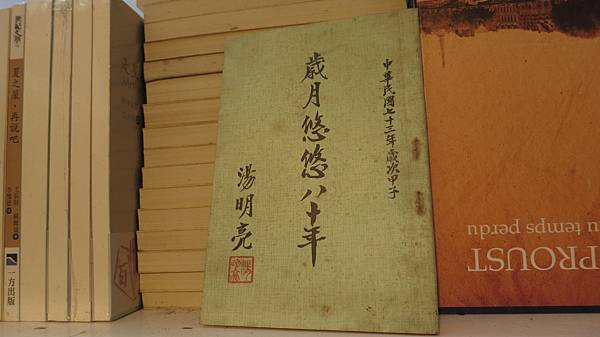 夏之屋‧再說吧
一方出版
中華民國七十三年歲次甲子
歲月悠悠八十年
湯明亮
PROUST
u temps perdu